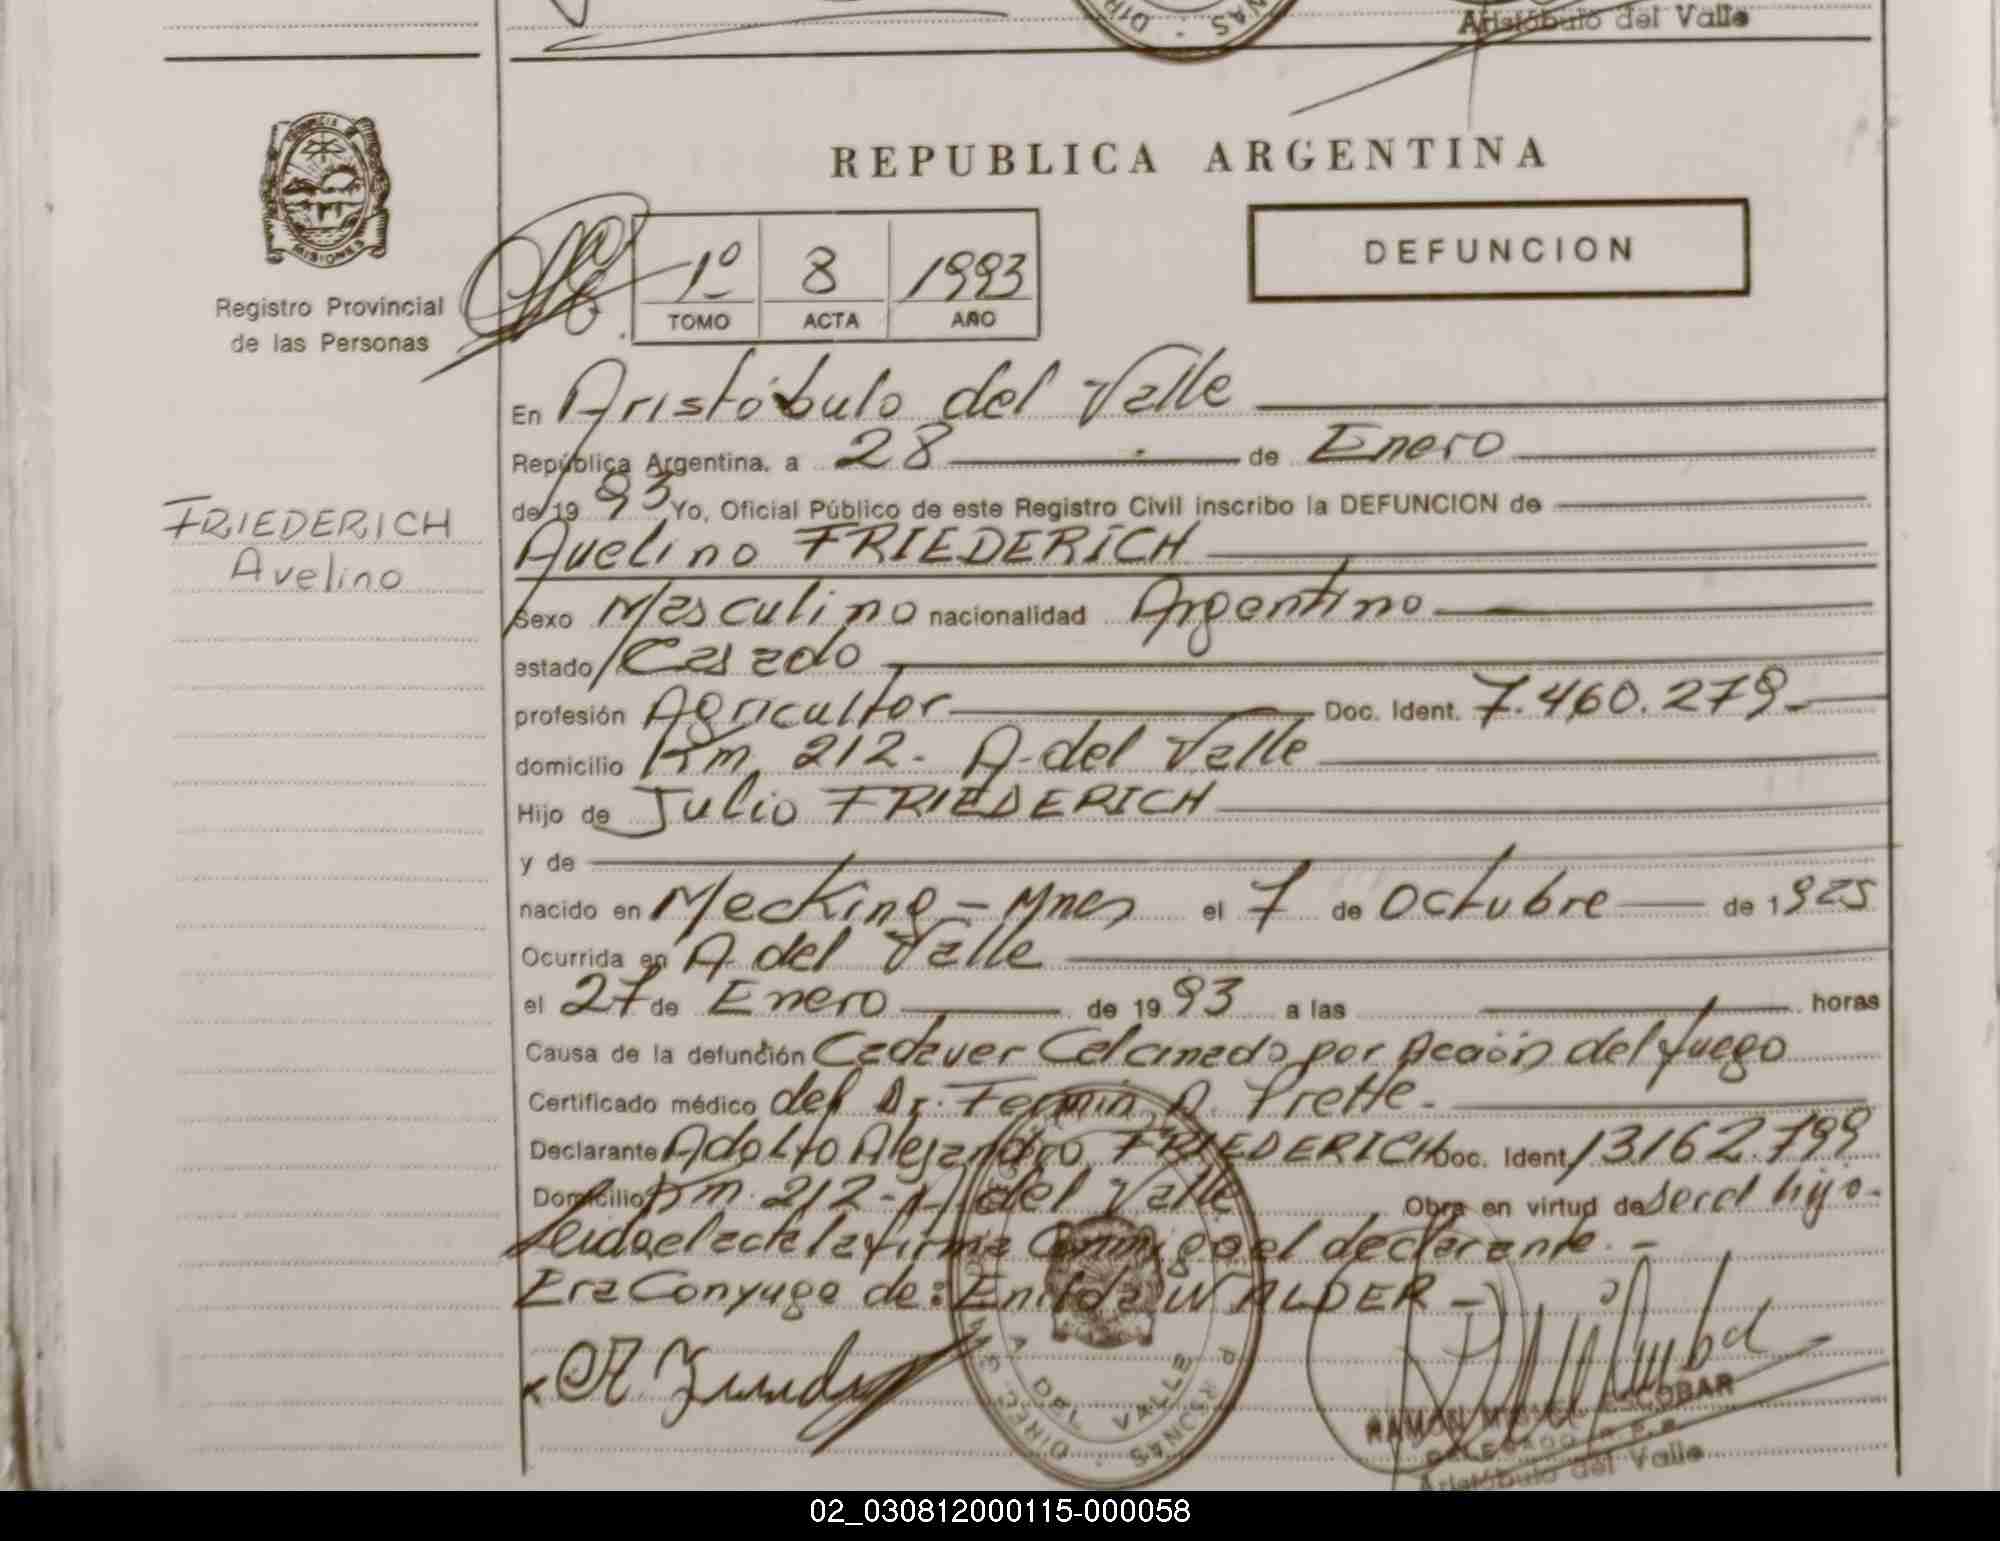 Aristóbulo del Valle
REPUBLICA ARGENTINA
PROVINCIA DE
MISIONES
Registro Provincial
de las Personas
1º 8 1993
TOMO ACTA AÑO
DEFUNCION
FRIEDERICH
Avelino
En Aristóbulo del Valle
República Argentina, a 28 de Enero
de 19 93 Yo, Oficial Público de este Registro Civil inscribo la DEFUNCION de
Avelino FRIEDERICH
Sexo Masculino nacionalidad Argentino
estado Casado
profesión Agricultor Doc. Ident. 7.460.279-
domicilio Km 212- A. del Valle
Hijo de Julio FRIEDERICH
y de
nacido en Mecking - Mnes el 7 de Octubre de 1925
Ocurrida en A del Valle
el 27 de Enero de 19 93 a las horas
Causa de la defunción Cadaver Calcinado por Acción del fuego
Certificado médico del Dr. Fermin A.
Declarante Adolfo Alejandro FRIEDERICH Doc. Ident. 13162.799
Domicilio Km. 212- A. del Valle Obra en virtud de ser el hijo-
Leida el acta la firma Conmigo el declarante. -
Era Conyuge de: Enilda WALDER -
RAMON MIGUEL ESCOBAR
DELEGADO R.P.P.
Aristóbulo del Valle
02_030812000115-000058